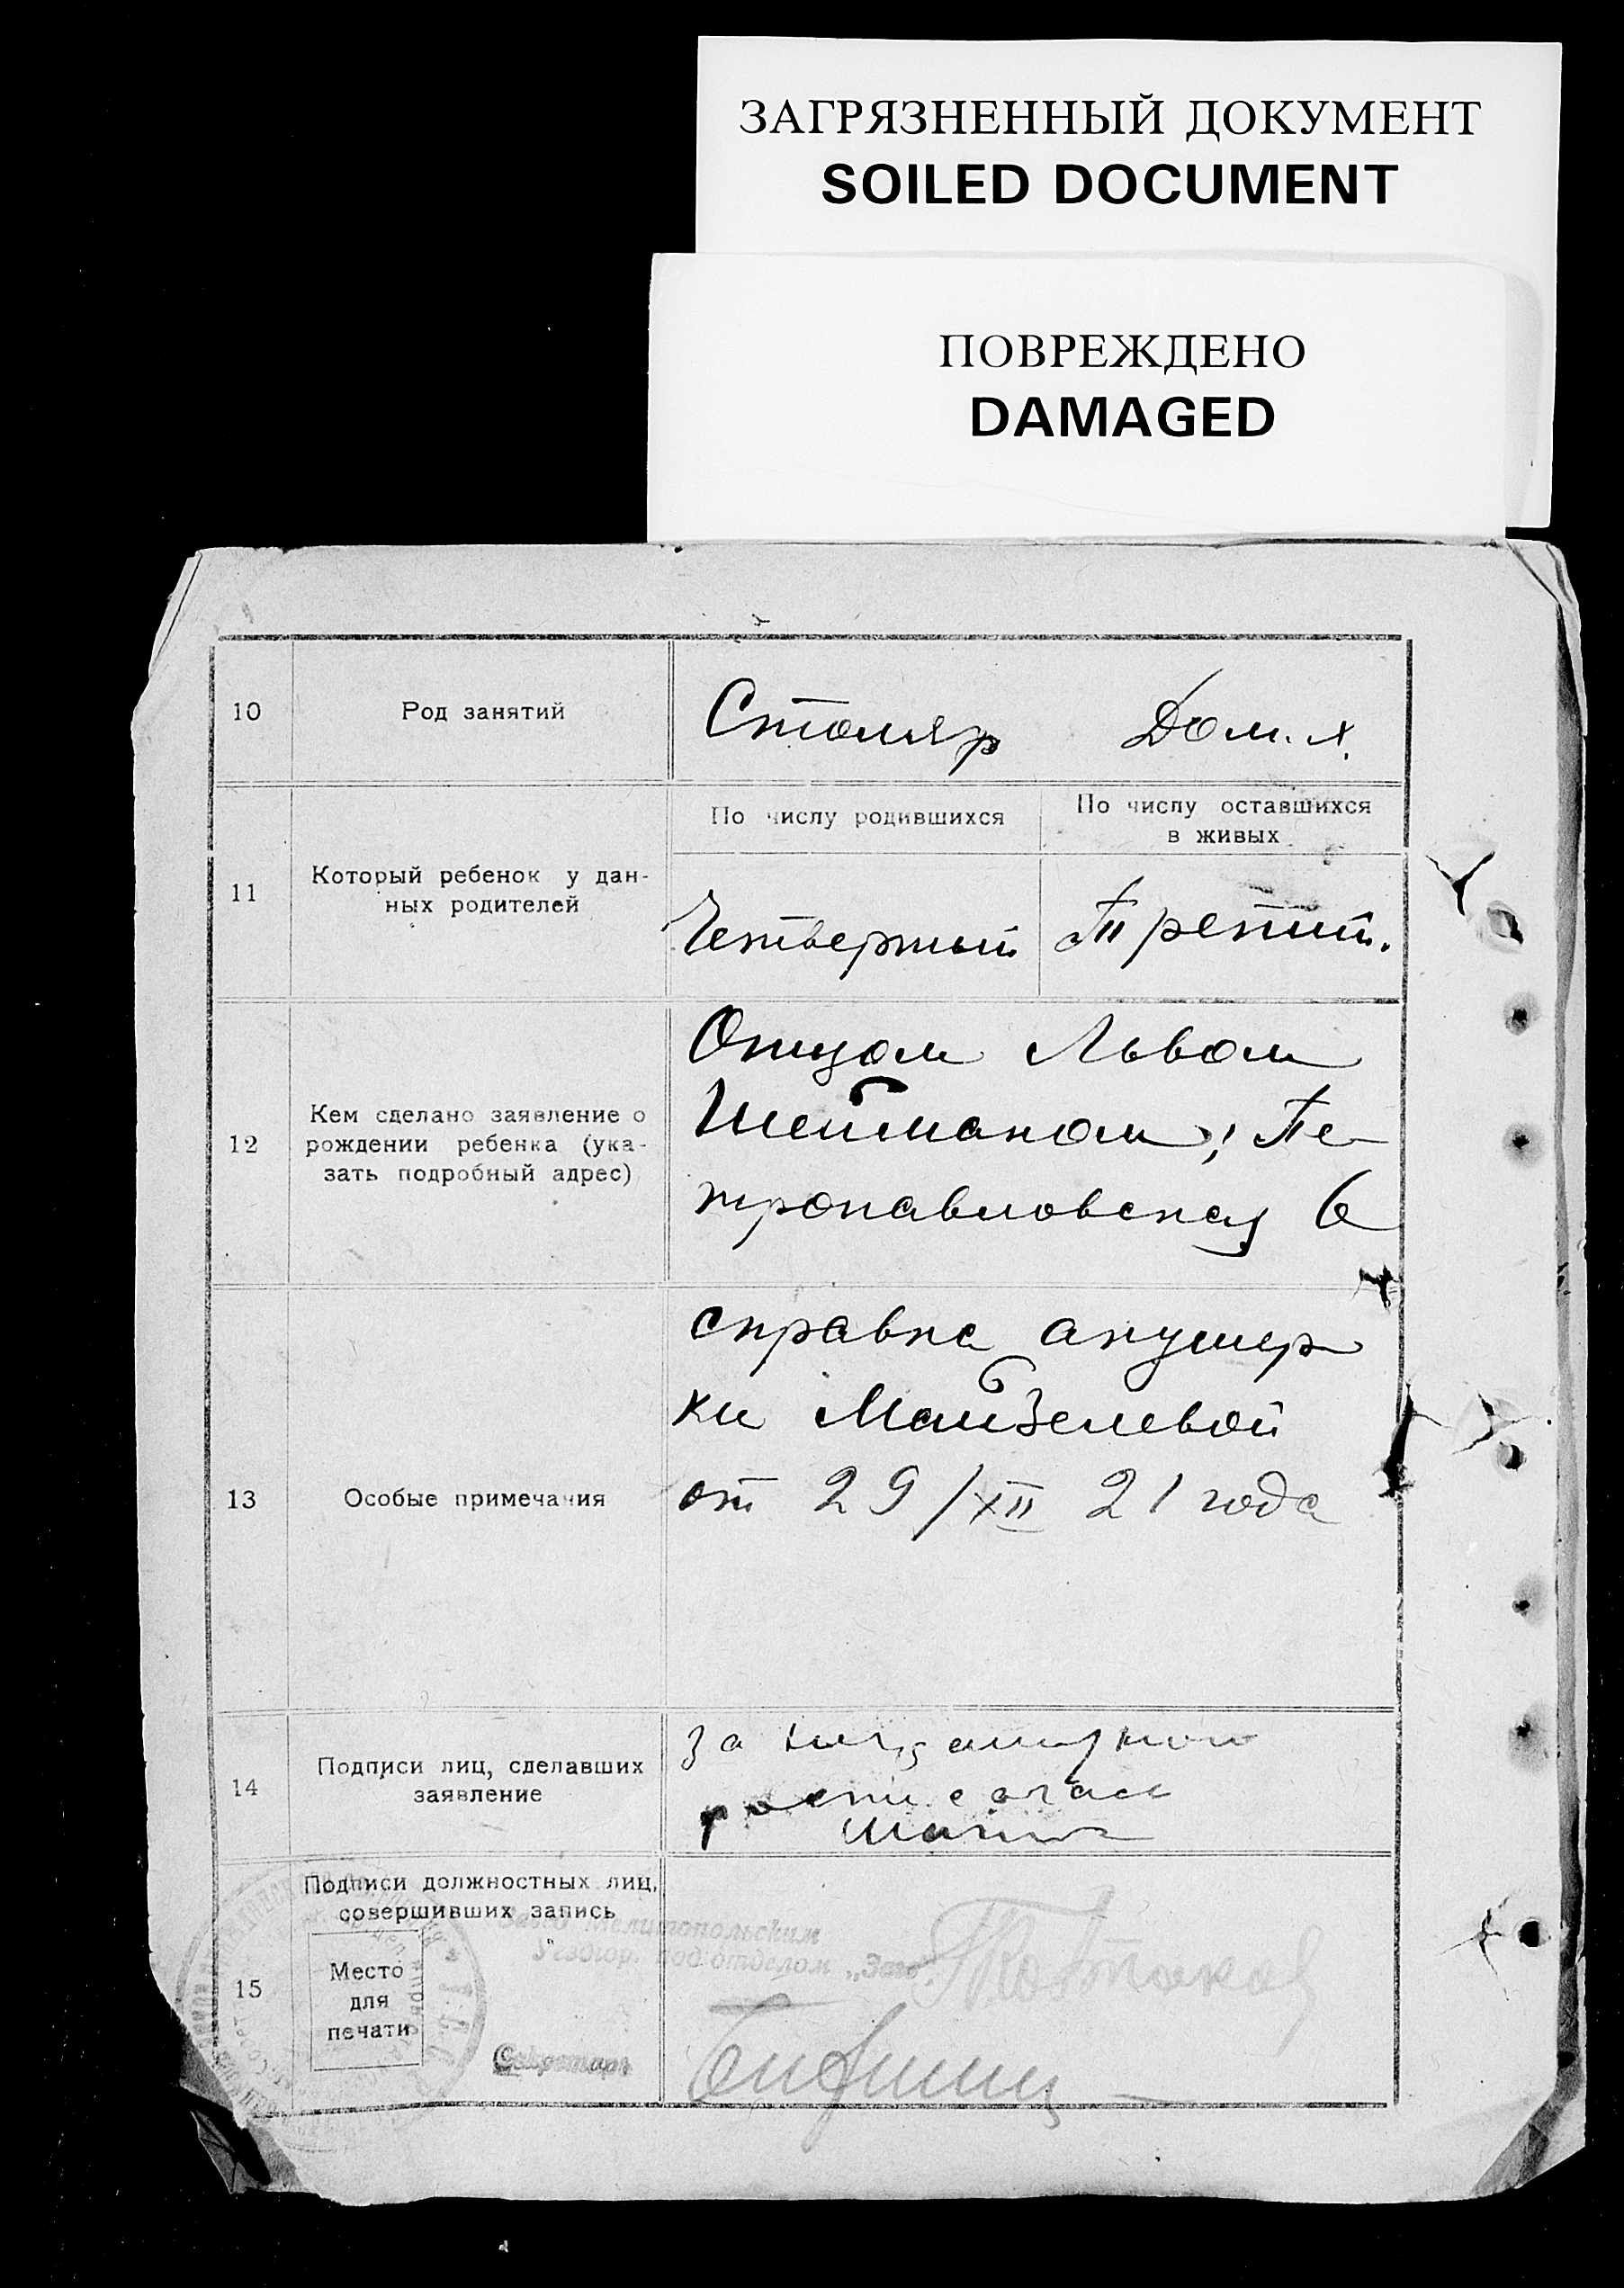 ЗАГРЯЗНЕННЫЙ ДОКУМЕНТ
SOILED DOCUMENT
ПОВРЕЖДЕНО
DAMAGED
10
Род занятий
Столяр Дом. х.
11
Который ребенок у дан-
ных родителей
По числу родившихся
По числу оставшихся
в живых
Четвертый
Третий.
12
Кем сделано заявление о
рождении ребенка (ука-
зать подробный адрес)
Отцом Львом
Шейманом, Пе-
тропавловская 6
13
Особые примечания
справка акушер
ки Майзелевой
от 29/XII 21 года
14
Подписи лиц, сделавших
заявление
за
15
Подписи должностных лиц,
совершивших запись
Место
для
печати
Мелитопольским
под'отделом „Загс"
Секретарь